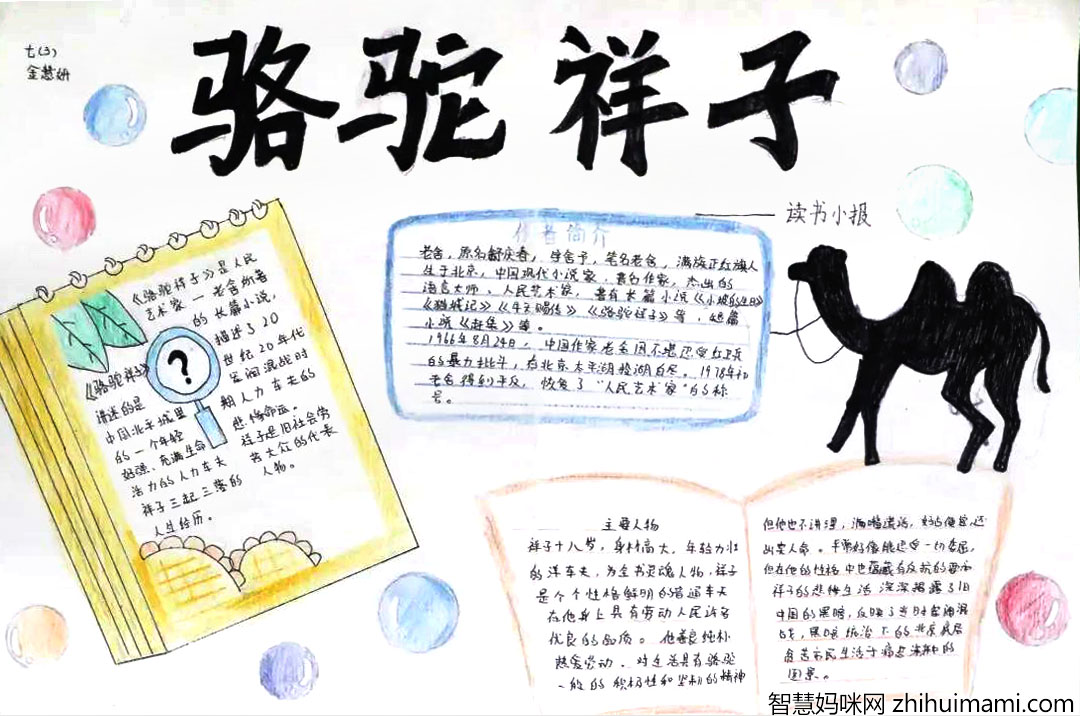 七(3)
金慧妍
骆驼祥子
读书小报
作者简介
老舍，原名舒庆春，字舍予，笔名老舍，满族正红旗人
生于北京，中国现代小说家、著名作家，杰出的
语言大师、人民艺术家，著有长篇小说《小坡的生日》
《猫城记》《牛天赐传》《骆驼祥子》等，短篇
小说《赶集》等。
1966年8月24日，中国作家老舍因不堪忍受红卫兵
的暴力批斗，在北京太平湖投湖自尽。1978年初
老舍得到平反，恢复了“人民艺术家”的称
号。
《骆驼祥子》是人民
艺术家—老舍所著
的长篇小说，
描述了20
世纪20年代
军阀混战时
期人力车夫的
悲惨命运。
祥子是旧社会劳
苦大众的代表
人物。
《骆驼祥子》
讲述的是
中国北平城里
的一个年轻
好强、充满生命
活力的人力车夫
祥子三起三落的
人生经历。
?
主要人物
祥子十八岁，身材高大，年轻力壮
的洋车夫，为全书灵魂人物，祥子
是个个性格鲜明的普通车夫
在他身上具有劳动人民许多
优良的品质。他善良纯朴
热爱劳动，对生活具有骆驼
一般的积极性和坚韧的精神
但他也不讲理，满嘴谎话，好占便宜，还
出卖人命。平常好像能忍受一切委屈，
但在他的性格中也蕴藏有反抗的要求
祥子的悲惨生活深深揭露了旧
中国的黑暗，反映了当时军阀混
战，黑暗统治下的北京底层
贫苦市民生活于痛苦深渊的
图景。
智慧妈咪网 zhihuimami.com